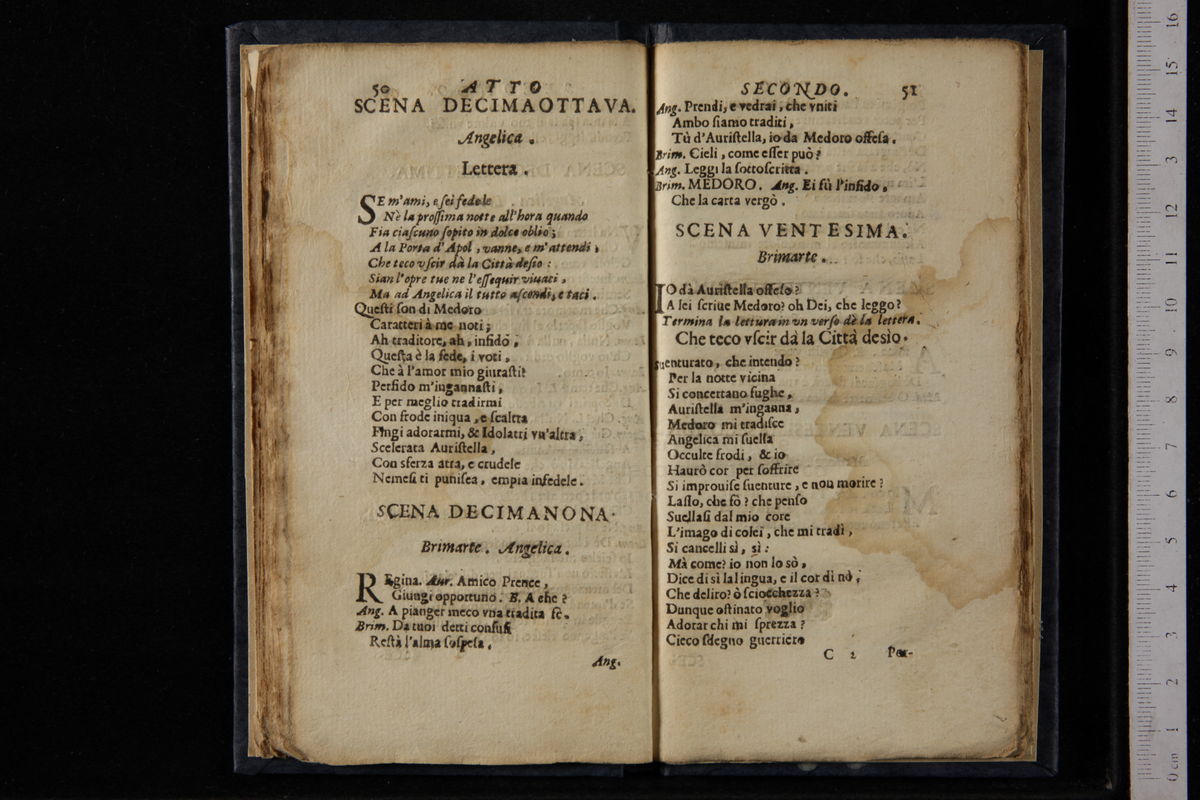 50 ATTO
SCENA DECIMAOTTAVA.
Angelica.
Lettera.
SE m'ami, e ſei fedele
Nè la proſſima notte all'hora quando
Fia ciaſcuno ſopito in dolce oblio;
A la Porta d'Apol, vanne, e m'attendi,
Che teco vſcir dà la Città deſio:
Sian l'opre tue ne l'eſſequir viuaci,
Ma ad Angelica il tutto aſcondi, e taci.
Queſti ſon di Medoro
Caratteri à me noti;
Ah traditore, ah, infido,
Queſta è la fede, i voti,
Che à l'amor mio giuraſti?
Perfido m'ingannaſti,
E per meglio tradirmi
Con frode iniqua, e ſcaltra
Fingi adorarmi, & Idolatri vn'altra,
Scelerata Auriſtella,
Con sferza atra, e crudele
Nemeſi ti puniſca, empia infedele.
SCENA DECIMANONA.
Brimarte. Angelica.
REgina. Aur. Amico Prence,
Giungi opportuno. B. A che?
Ang. A pianger meco vna tradita fè.
Brim. Da tuoi detti confuſi
Reſtà l'alma ſoſpeſa.
Ang.
SECONDO. 51
Ang. Prendi, e vedrai, che vniti
Ambo ſiamo traditi,
Tù d'Auriſtella, io da Medoro offeſa.
Brim. Cieli, come eſſer può?
Ang. Leggi la ſottoſcritta.
Brim. MEDORO. Ang. Ei fù l'infido,
Che la carta vergò.
SCENA VENTESIMA.
Brimarte.
IO dà Auriſtella offeſo?
A lei ſcriue Medoro? oh Dei, che leggo?
Termina la lettura in vn verſo dè la lettera.
Che teco vſcir dà la Città desìo.
suenturato, che intendo?
Per la notte vicina
Si concertano fughe,
Auriſtella m'inganna,
Medoro mi tradiſce
Angelica mi ſuella
Occulte frodi, & io
Haurò cor per ſoffrire
Si improuiſe ſuenture, e non morire?
Laſſo, che fò? che penſo
Suellaſi dal mio core
L'imago di colei, che mi tradì,
Si cancelli sì, sì:
Mà come? io non lo sò,
Dice di sì la lingua, e il cor di nò;
Che deliro? ò ſciocchezza?
Dunque oſtinato voglio
Adorar chi mi ſprezza?
Cieco ſdegno guerriero
C 2 Per-